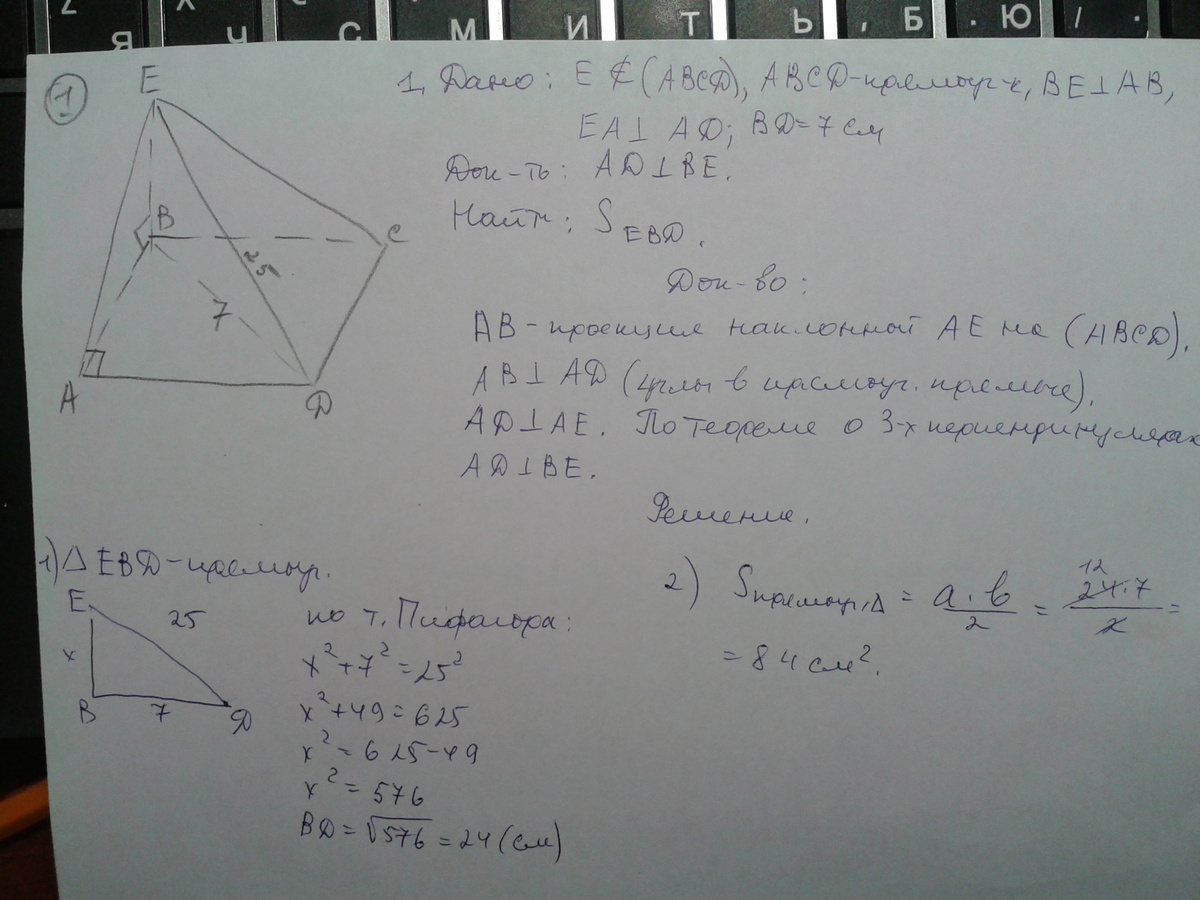 Я Ч С М И Т Ь , Б . Ю / .
1
E
B
C
25
7
A
D
1, Дано: E ∉ (ABCD), ABCD-прямоуг-к, BE⊥AB,
EA⊥ AD; BD=7 см
Док-ть: AD⊥BE.
Найти: S EBD.
Док-во:
AB-проекция наклонной AE на (ABCD).
AB⊥AD (углы в прямоуг. прямые).
AD⊥AE. По теореме о 3-х перпендикулярах
AD⊥BE.
Решение.
1) △ EBD-прямоуг.
E
25
x
B
7
D
по т. Пифагора:
x²+7²=25²
x²+49=625
x²=625-49
x²=576
BD=√576=24(см)
2) S прямоуг.△ = a·b/2 = 12 24·7/2 =
= 84 см².